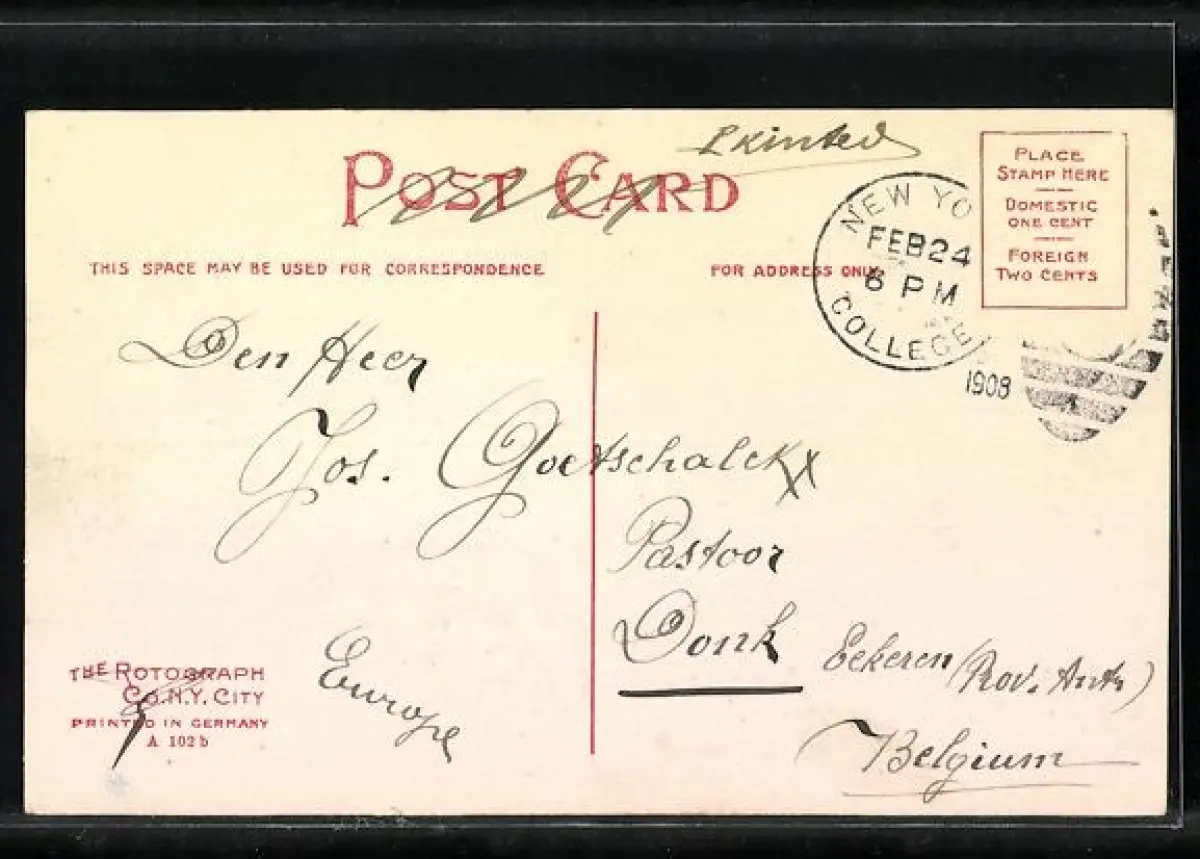 Printed
POST CARD
PLACE
STAMP HERE
DOMESTIC
ONE CENT
FOREIGN
TWO CENTS
NEW YO
FEB 24
6 PM
COLLEGE
1908
THIS SPACE MAY BE USED FOR CORRESPONDENCE
FOR ADDRESS ONLY
Den Heer
Jos. Goetschalckx
Pastoor
Donk Eekeren (Prov. Antw)
Europe
Belgium
THE ROTOGRAPH
CO. N.Y. CITY
PRINTED IN GERMANY
A 102 b